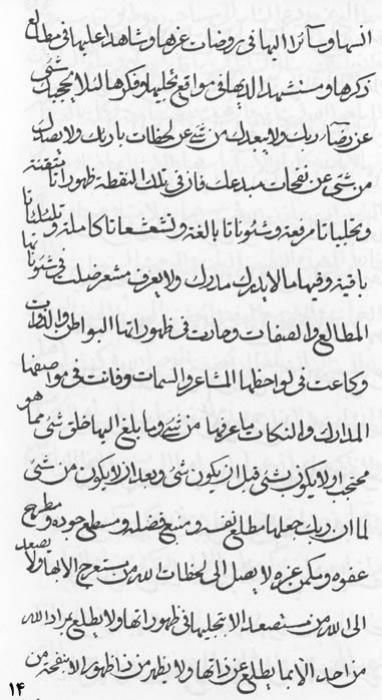 اليها وسائرا اليها فى روضات عزها وشاهدا عليها فى مطالع
ذكرها ومستشهدا لديها فى مواقع تجليها وفكرها لئلا يحجبك شئ
عن رضاء ربك ولا يبعدك من شئ عن لحظات بارئك ولا يصدك
من شئ عن نفحات مبدعك فان فى تلك النقطة ظهورات متقنة
وتجليات مرفعة وشئونات بالغة وتشعشعات كاملة و
باقية وفيها ما لا يدرك مدرك ولا يعرف مشعر ضلت فى شئوناتها
المطالع والصفات وحارت فى ظهوراتها البواطن والذوات
وكاعت فى لواحظها المشاعر والسمات وفاتت فى مواصفها
المدارك والنكات ما عرفها من شئ وما بلغ اليها خلق شئ مما هو
محتجب اولا يكون بشئ قبل ان يكون شئ وبعد ان لا يكون من شئ
لما ان ربك جعلها مطالع نفسه ومنبع فضله ومسطع جوده ومطرح
عفوه ومكمن عزه لا يصل الى لحظات الله من مستعرج الا بها ولا يصعد
الى الله من مستصعد الا بتجليها فى ظهوراتها ولا يطلع بمراد الله
من احد الا بما يطلع عن ذاتها ولا يظهر من ذا ظهور الا بنفحة من
۱۴